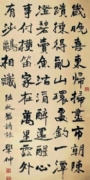 歲晚喜東歸掃盡市朝陳
迹揀得亂山環處釣一潭
澄碧賣魚沽酒醉還醒心
事付橫笛家在萬里雲外
有沙鷗相識 學仲